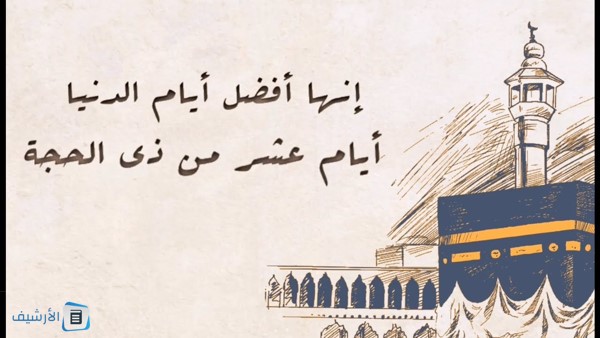 إنها أفضل أيام الدنيا
أيام عشر من ذى الحجة
الأرشيف